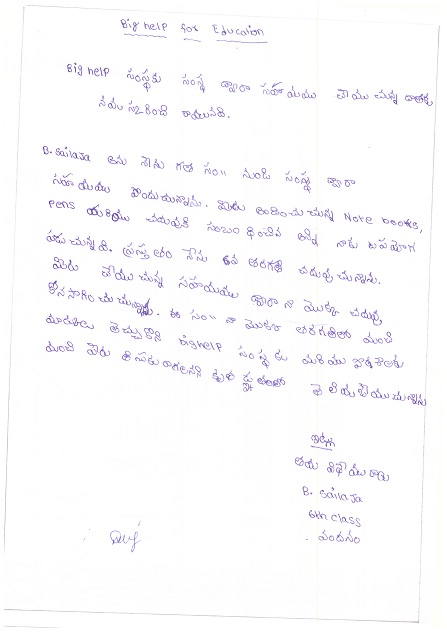 Big help for Education
Big help సంస్థకు సంస్థ ద్వారా సహాయము చేయు చున్న దాతలకు
నమస్కరించి రాయునది.
B. Sailaja అను నేను గత సం॥ నుండి సంస్థ ద్వారా
సహాయము పొందుచున్నాను. మీరు అందించు చున్న Note books,
pens మరియు చదువుకి సంబంధించిన అన్ని నాకు ఉపయోగ
పడు చున్నవి. ప్రస్తుతం నేను 6వ తరగతి చదువు చున్నాను.
మీరు చేయు చున్న సహాయము ద్వారా నా యొక్క చదువు
కొనసాగించు చున్నాను. ఈ సం॥ నా యొక్క తరగతిలో మంచి
మార్కులు తెచ్చుకొని bighelp సంస్థకు మరియు పాఠశాలకు
మంచి పేరు తీసుకు రాగలనని కృతజ్ఞతలతో తెలియచేయు చున్నాను
ఇట్లు
తమ విధేయురాలు
B. Sailaja
6th class
వందనం